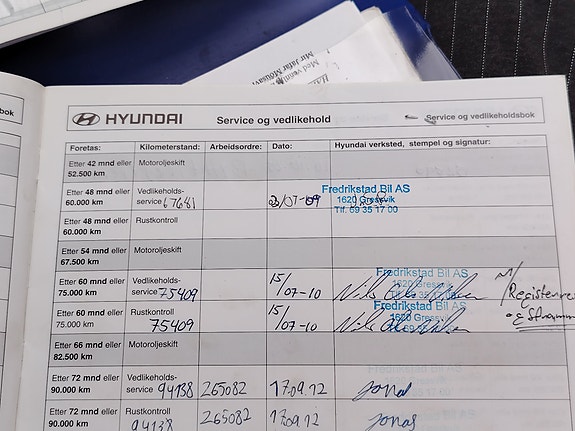 Med venn
Mir Jafar Mousav
bok
HYUNDAI
Service og vedlikehold
Service og vedlikeholdsbok
Foretas: Kilometerstand: Arbeidsordre: Dato: Hyundai verksted, stempel og signatur:
Etter 42 mnd eller 52.500 km Motoroljeskift
Etter 48 mnd eller 60.000 km Vedlikeholds-service 67681 Fredrikstad Bil AS
1620 Gressvik
Tlf. 69 35 17 00
Etter 48 mnd eller 60.000 km Rustkontroll
Etter 54 mnd eller 67.500 km Motoroljeskift
Etter 60 mnd eller 75.000 km Vedlikeholds-service 75409 15/07-10 Fredrikstad Bil AS
1620 Gressvik
m/
Registerre
Etter 60 mnd eller 75.000 km Rustkontroll 75409 15/07-10 Fredrikstad Bil AS
Etter 66 mnd eller 82.500 km Motoroljeskift
Etter 72 mnd eller 90.000 km Vedlikeholds-service 94138 265082 17.09.12 Jonas
Etter 72 mnd eller 90.000 km Rustkontroll 94138 265082 17.09.12 Jonas